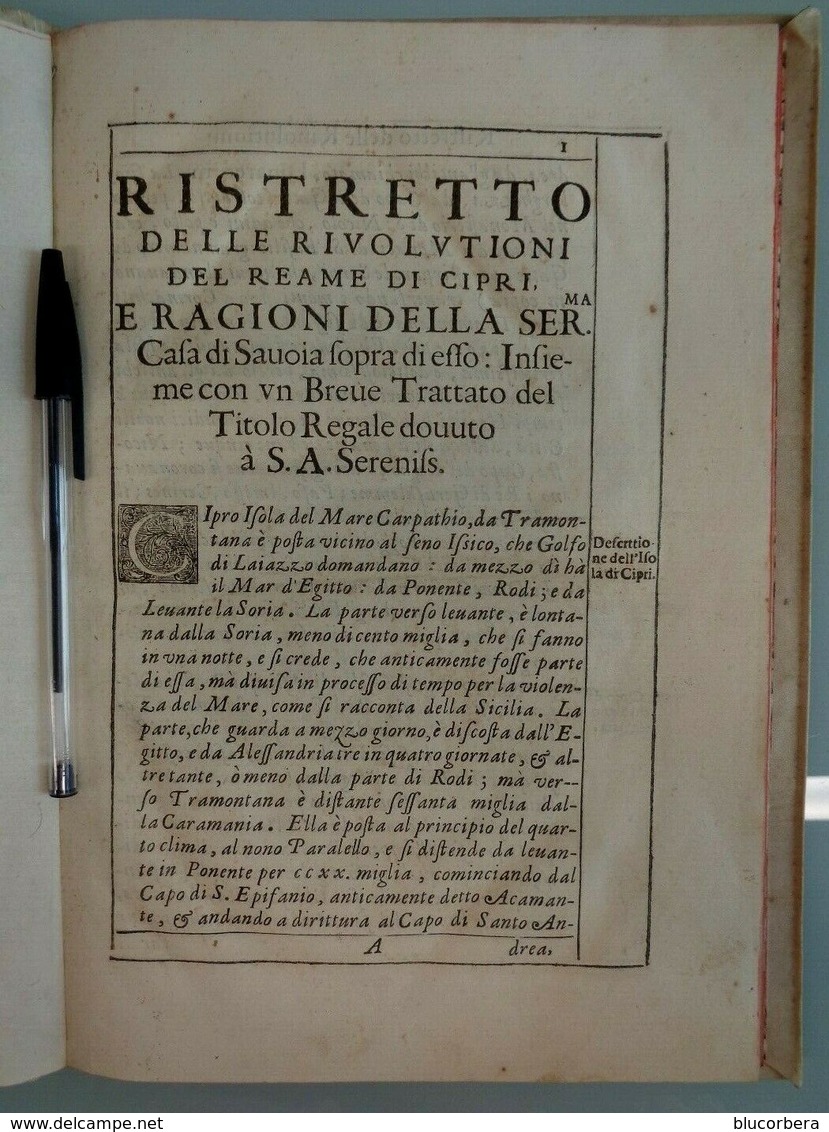 1
RISTRETTO
DELLE RIVOLVTIONI
DEL REAME DI CIPRI,
E RAGIONI DELLA SER.MA
Caſa di Sauoia ſopra di eſſo: Inſie-
me con vn Breue Trattato del
Titolo Regale douuto
à S. A. Sereniſs.
CIpro Iſola del Mare Carpathio, da Tramon-
tana è poſta vicino al ſeno Iſsico, che Golfo
di Laiazzo domandano: da mezzo dì hà
il Mar d'Egitto: da Ponente, Rodi; e da
Leuante la Soria. La parte verſo leuante, è lonta-
na dalla Soria, meno di cento miglia, che ſi fanno
in vna notte, e ſi crede, che anticamente foſſe parte
di eſſa, mà diuiſa in proceſſo di tempo per la violen-
za del Mare, come ſi racconta della Sicilia. La
parte, che guarda a mezzo giorno, è diſcoſta dall'E-
gitto, e da Aleſſandria tre in quatro giornate, & al-
tretante, ò meno dalla parte di Rodi; mà ver--
ſo Tramontana è diſtante ſeſſanta miglia dal-
la Caramania. Ella è poſta al principio del quar-
to clima, al nono Paralello, e ſi diſtende da leuan-
te in Ponente per ccxx. miglia, cominciando dal
Capo di S. Epifanio, anticamente detto Acaman-
te, & andando a dirittura al Capo di Santo An-
A drea,
Deſcrttio-
ne dell'Iſo
la di Cipri.
www.delcampe.net
blucorbera